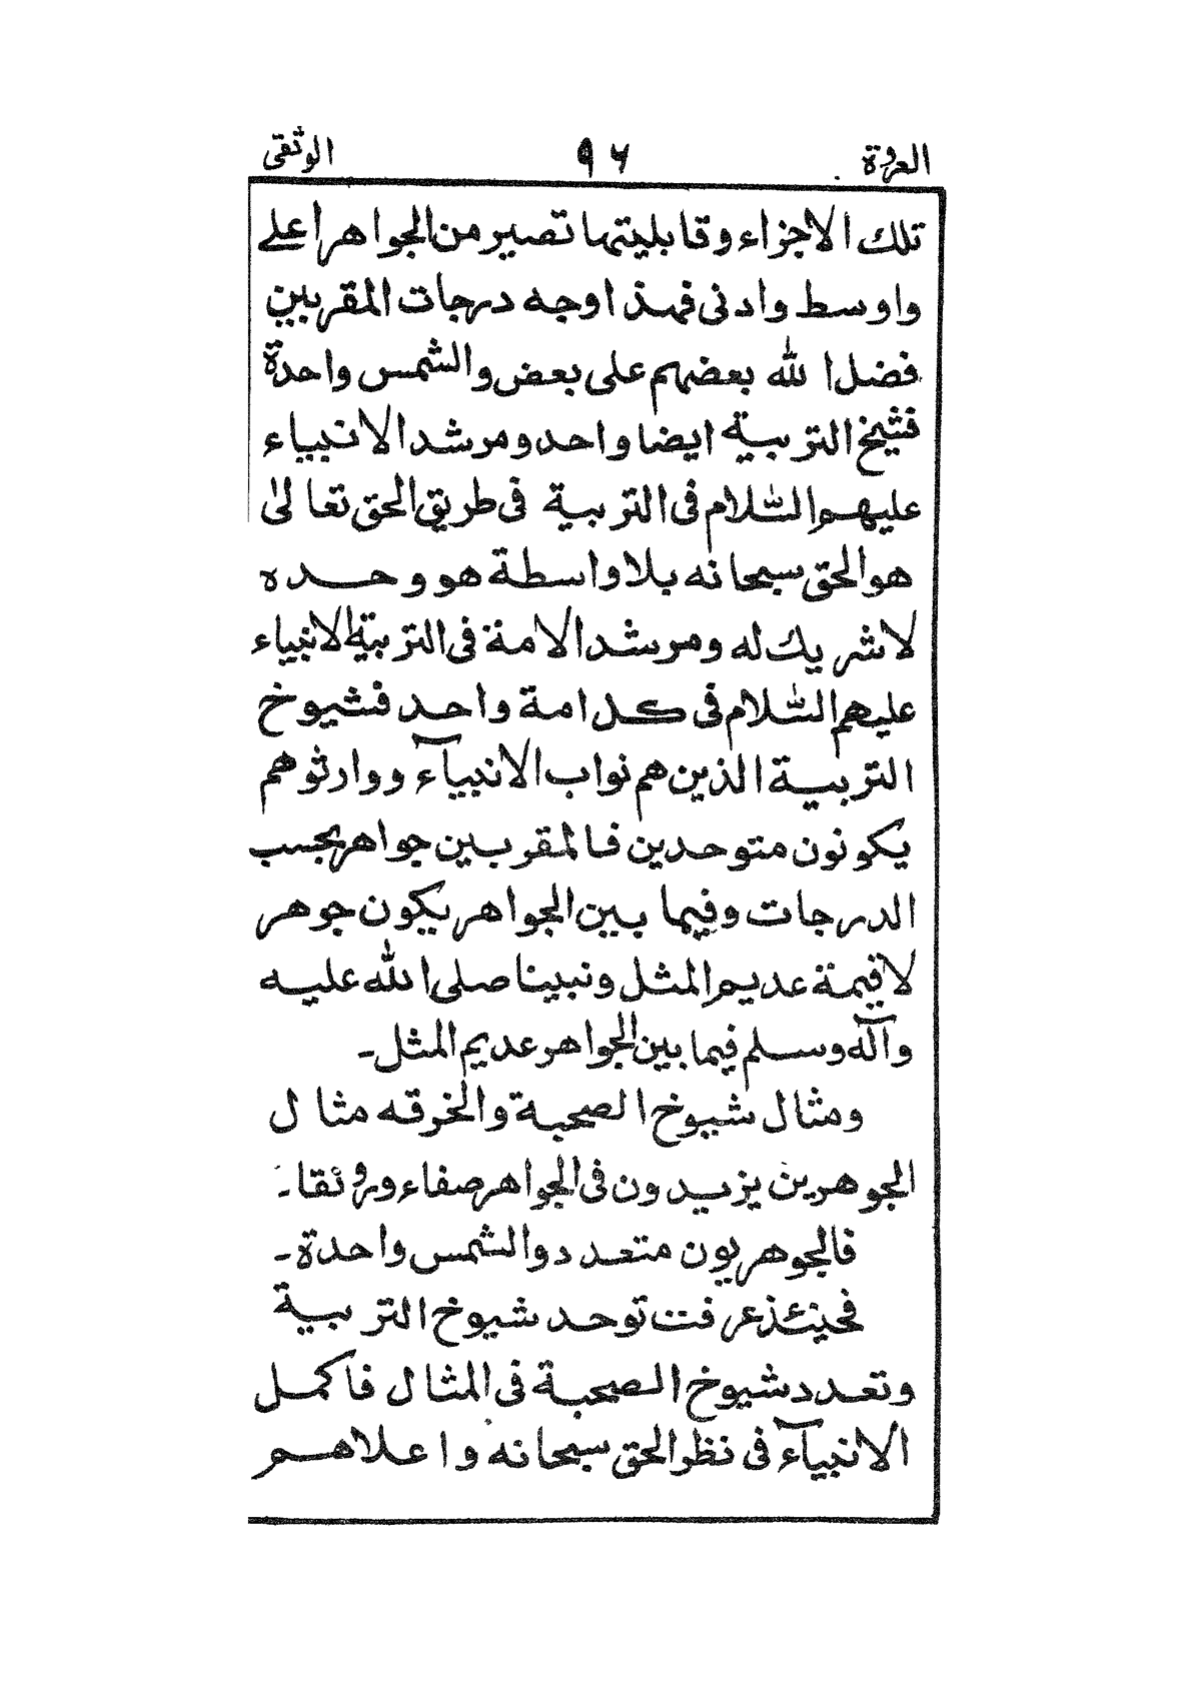 العروة ٩٦ الوثقى
تلك الاجزاء وقابليتها تصير من الجواهر اعلے
واوسط وادنى فهذا وجه درجات المقربين
فضل الله بعضهم على بعض والشمس واحدة
فشيخ التربية ايضا واحد ومرشد الانبياء
عليهم السّلام فى التربية فى طريق الحق تعالىٰ
هو الحق سبحانه بلا واسطة هو وحده
لا شريك له ومرشد الامة فى التربية الانبياء
عليهم السّلام فى كل امة واحد فشيوخ
التربية الذين هم نواب الانبيآء ووارثوهم
يكونون متوحدين فالمقربين جواهر بحسب
الدرجات وفيما بين الجواهر يكون جوهر
لا قيمة عديم المثل ونبينا صلى الله عليه
وآله وسلم فيما بين الجواهر عديم المثل۔
ومثال شيوخ الصحبة والخرقه مثال
الجوهرين يزيدون فى الجواهر صفاء ورونقا۔
فالجوهريون متعدد والشمس واحدة۔
فحينئذ عرفت توحد شيوخ التربية
وتعدد شيوخ الصحبة فى المثال فاكمل
الانبيآء فى نظر الحق سبحانه واعلاهم